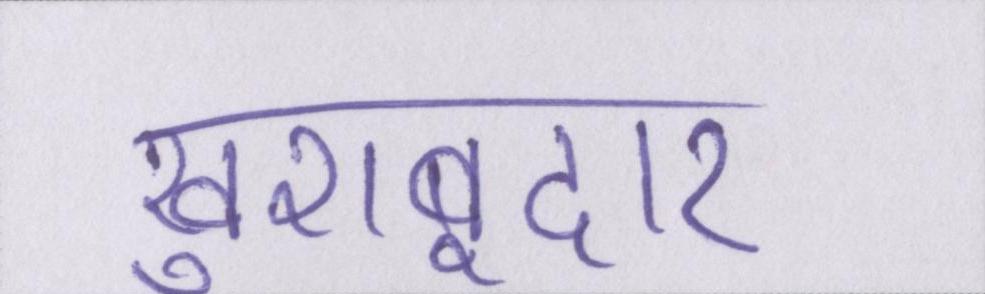 खुशबूदार